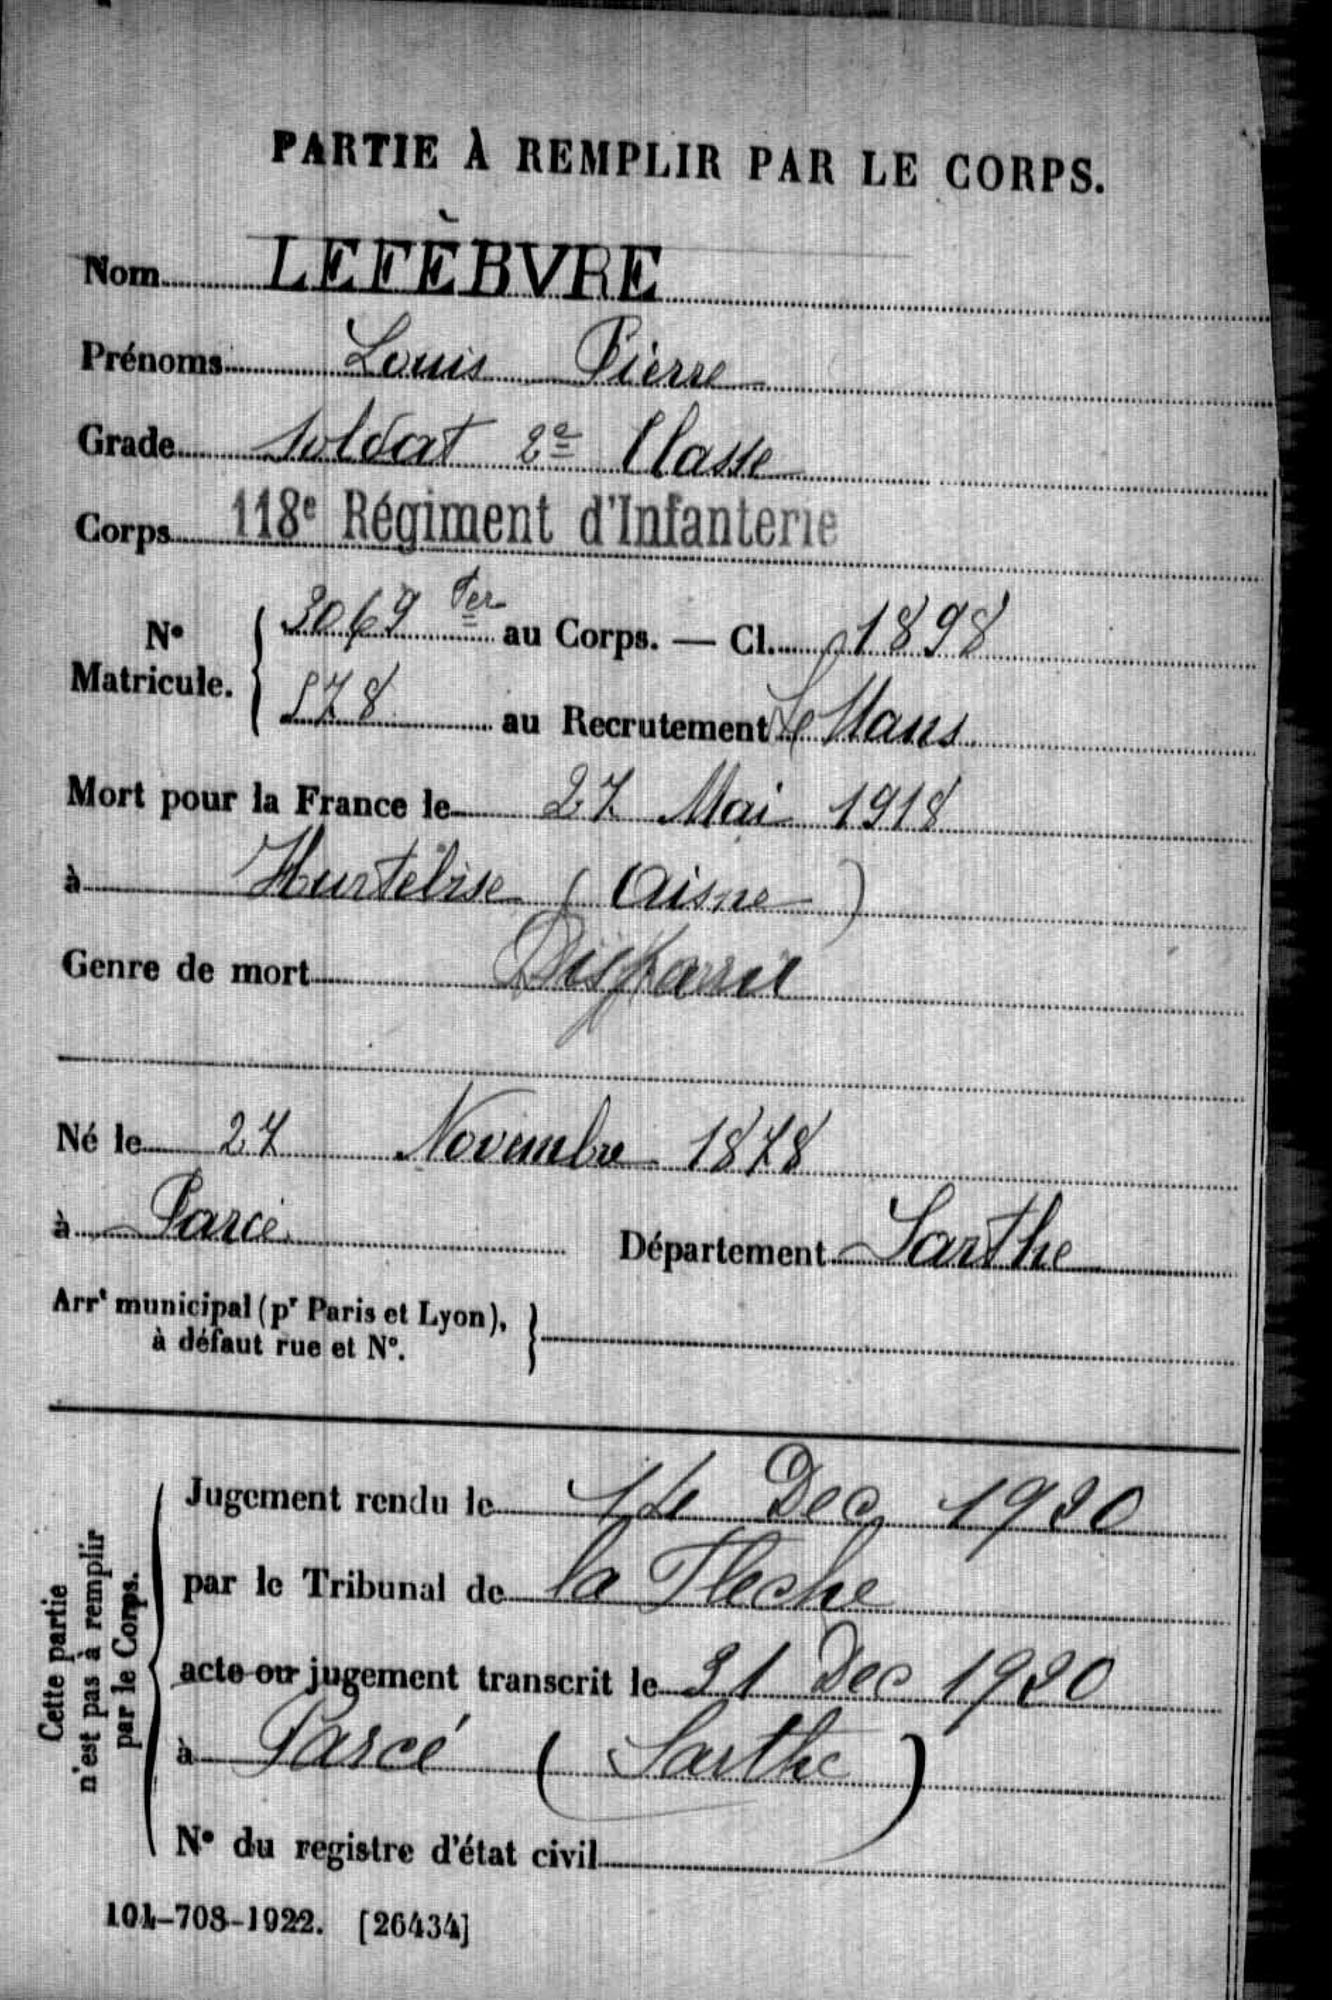 PARTIE À REMPLIR PAR LE CORPS.
Nom LEFÈBVRE
Prénoms Louis Pierre
Grade Soldat 2e Classe
Corps 118e Régiment d'Infanterie
N° Matricule. 3069 Ter au Corps. — Cl. 1898
578 au Recrutement Le Mans
Mort pour la France le 27 Mai 1918
à Hurtebise (Aisne)
Genre de mort Disparu
Né le 27 Novembre 1878
à Parcé Département Sarthe
Arrt municipal (pr Paris et Lyon),
à défaut rue et N°.
Cette partie
n'est pas à remplir
par le Corps.
Jugement rendu le 14 Dec 1920
par le Tribunal de la Fleche
acte ou jugement transcrit le 21 Dec 1920
à Parcé (Sarthe)
N° du registre d'état civil
101-708-1922. [26434]